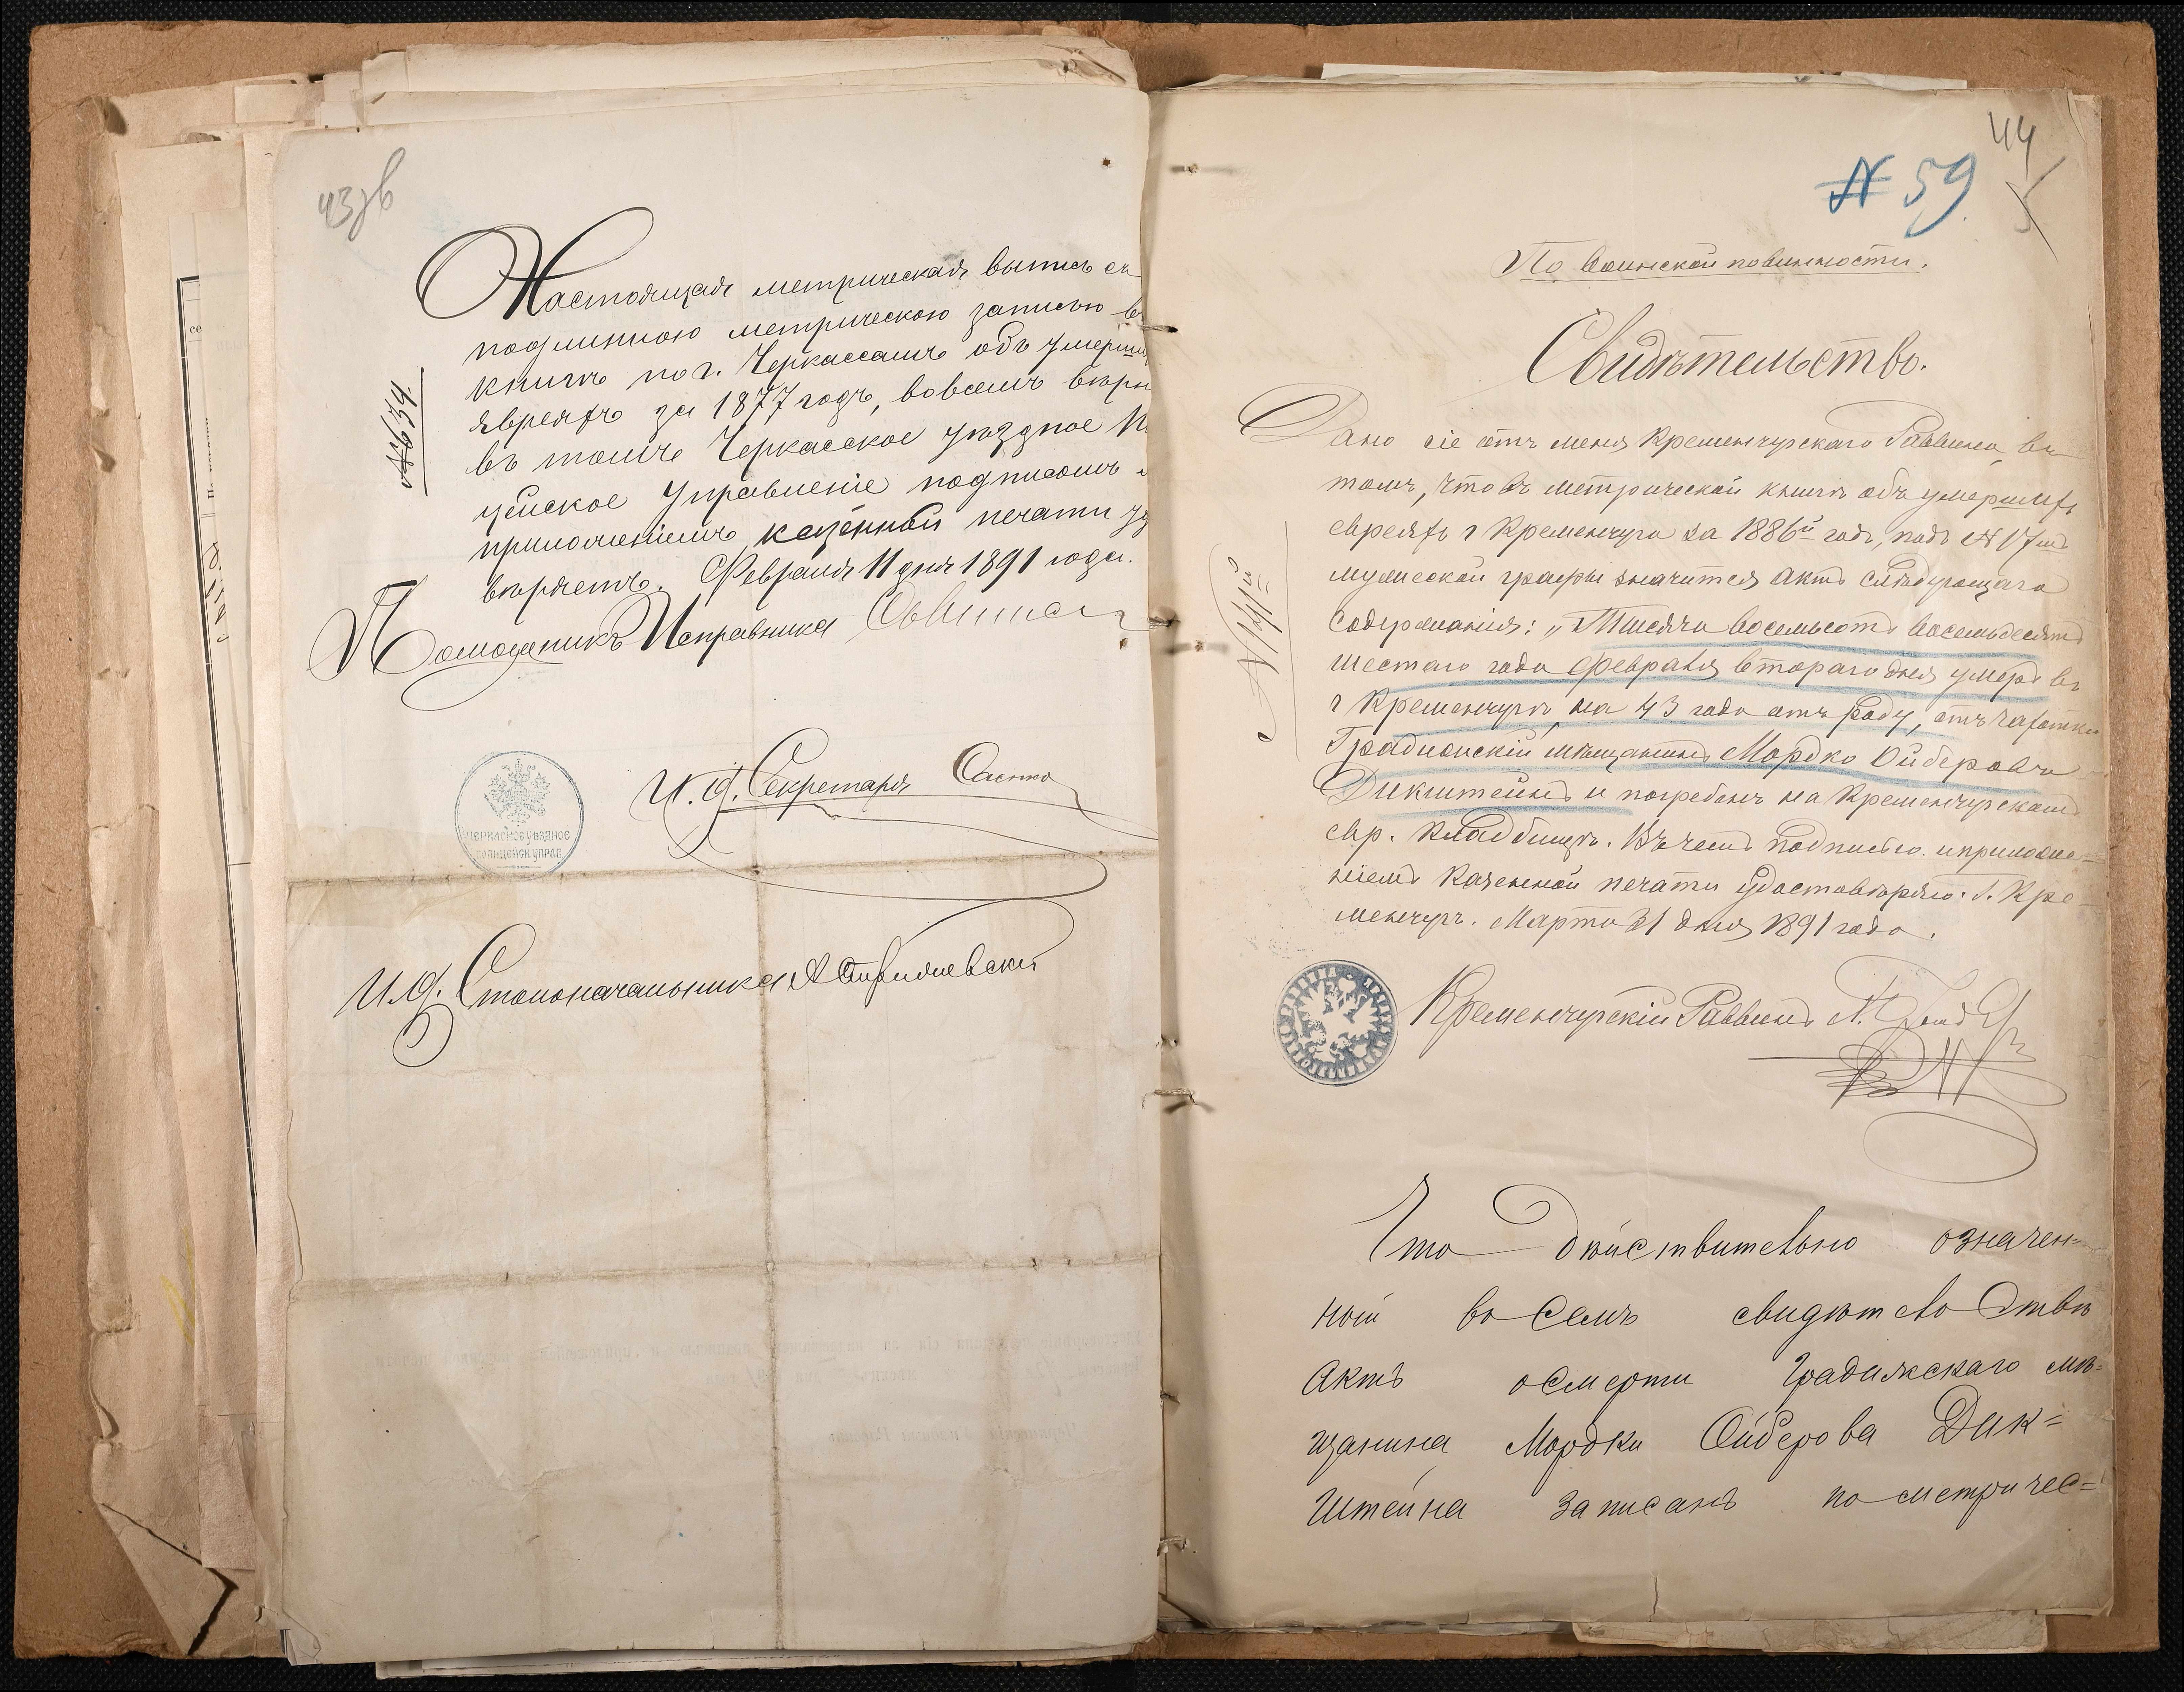 43об
Настоящая метрическая выпись съ
подлинною метрическою записью въ
книгѣ по г. Черкассамъ объ умерши
евреяхъ за 1877 годъ, во всемъ вѣрн
въ томъ Черкасское уѣздное П
цейское Управленіе подписомъ и
приложеніемъ казенной печати уд
вѣряетъ. Февраля 11 дня 1891 года.
№ 639.
Помощникъ Исправника
ЧЕРКАСКОЕ УѢЗДНОЕ
ПОЛИЦЕЙСК УПРАВ
И. д. Секретаря
И. д. Столоначальника
44
№ 59
По воинской повинности.
Свидѣтельство.
Дано сіе отъ меня Кременчугскаго Раввина, въ
томъ, что въ метрической книгѣ объ умершихъ
евреяхъ г Кременчуга за 1886й годъ, подъ № 17мъ
мужеской графы значится актъ слѣдующаго
содержанія: „Тысяча восемьсотъ восемьдесятъ
шестаго года Февраля втораго дня умеръ въ
г Кременчугѣ, на 43 году отъ роду, отъ чахотки
Градижскій мѣщанинъ Мордко Ойберовъ
Дикштейнъ и погребенъ на Кременчугскомъ
евр. кладбищѣ. Въ чемъ подписью и приложе-
ніемъ казенной печати удостовѣряю. Г. Кре-
менчугъ. Марта 31 дня 1891 года.
Кременчугскій Раввинъ
Что дѣйствительно означен=
ный въ семъ свидѣтельствѣ
актъ о смерти Градижскаго мѣ=
щанина Мордки Ойберова Дик=
штейна записанъ по метричес=